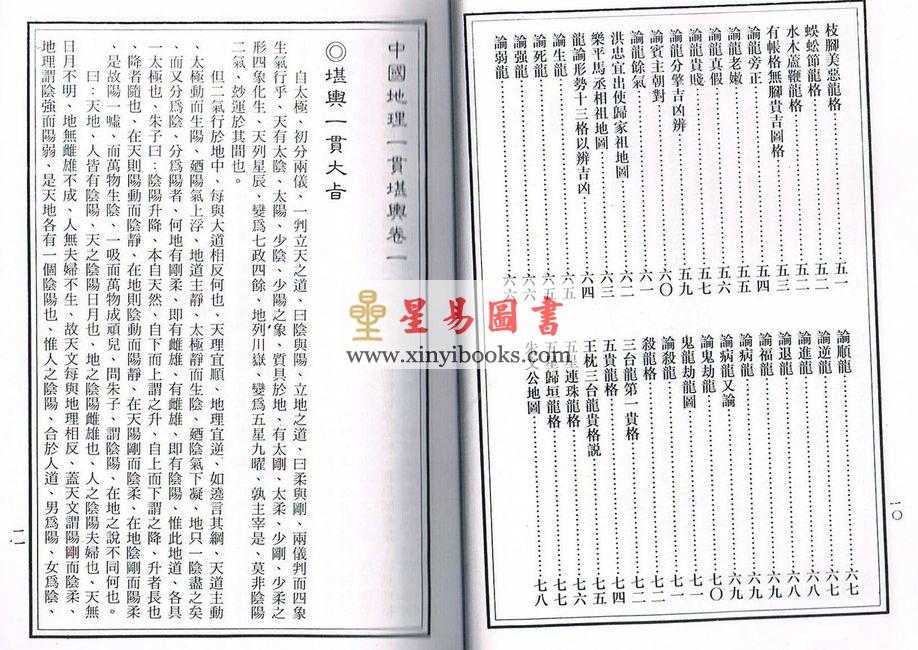 枝腳美惡龍格……五一
蜈蚣節龍格……五二
水木蘆鞭龍格……五二
有帳格無腳貴吉圖格……五三
論龍旁正……五四
論龍老嫩……五五
論龍真假……五六
論龍貴賤……五七
論龍分擘吉凶辨……五九
論賓主朝對……六〇
論龍餘氣……六一
洪忠宜出使歸家祖地圖……六二
樂平馬丞相祖地圖……六三
龍論形勢十三格以辨吉凶……六四
論生龍……六五
論死龍……六五
論强龍……六六
論弱龍……六六
論順龍……六七
論逆龍……六七
論進龍……六八
論退龍……六八
論福龍……六九
論病龍……六九
論鬼劫龍……六九
論病龍又論……七〇
鬼龍劫龍圖……七一
論殺龍……七一
殺龍格……七二
三台龍第一貴格……七四
五貴龍格……七四
王枕三台龍貴格説……七五
五星連珠龍格……七六
五星歸垣龍格……七七
朱文公地圖……七八
一〇
中國地理一貫堪輿卷一
自太極、初分兩儀、一判立天之道、曰陰與陽、立地之道、曰柔與剛、兩儀判而四象
生氣行乎、天有太陰、太陽、少陰、少陽之象、質具於地、有太剛、太柔、少剛、少柔之
形四象化生、天列星辰、變爲七政四餘、地列川嶽、變爲五星九曜、孰主宰是、莫非陰陽
二氣、妙運於其間也。
◎堪輿一貫大旨
但二氣行於地中、每與大道相反何也、天理宜順、地理宜逆、如遶言其綱、天道主動
、太極動而生陽、廼陽氣上浮、地道主靜、太極靜而生陰、廼陰氣下凝、地只一陰盡之矣
、而又分爲陰、分爲陽者、何地有剛柔、即有雌雄、有雌雄、即有陰陽、惟此地道、各具
一太極也、朱子曰：陰陽升降、本自天然、自下而上謂之升、自上而下謂之降、升者長也
、降者隨也、在天則陽動而陰靜、在地則陰動而陽靜、在天陽剛而陰柔、在地陰剛而陽柔
、是故陽一噓、而萬物生陰、一吸而萬物成頑兒、問朱子、謂陰陽、在地之說不同何也。
曰：天地、人皆有陰陽、天之陰陽日月也、地之陰陽雌雄也、人之陰陽夫婦也、天無
日月不明、地無雌雄不成、人無夫婦不生、故天文每與地理相反、蓋天文謂陽剛而陰柔、
地理謂陰強而陽弱、是天地各有一個陰陽也、惟人之陰陽、合於人道、男爲陽、女爲陰、
一一
星易圖書
www.xinyibooks.com